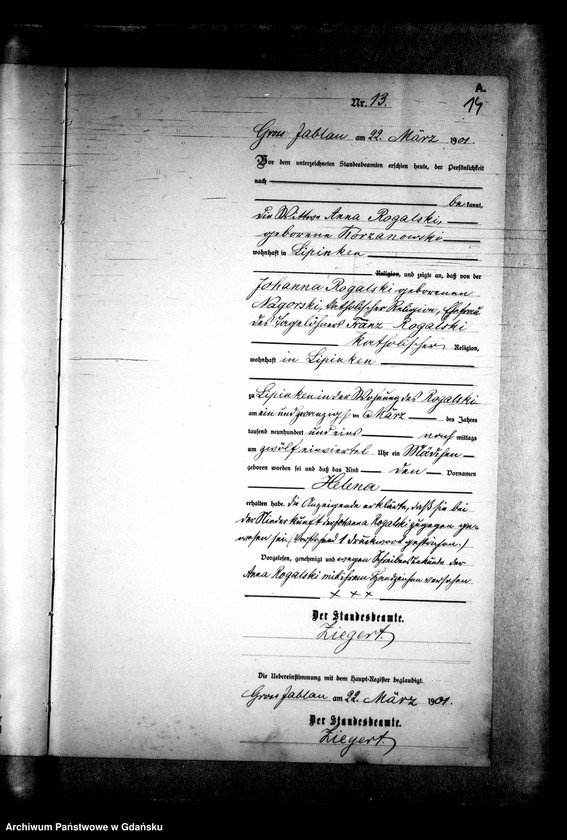 A.
14
Nr. 13.
Gross Jablau am 22. März 1901.
Vor dem unterzeichneten Standesbeamten erschien heute, der Persönlichkeit
nach
be kannt,
die Wittwe Anna Rogalski,
geborene Korzanowski
wohnhaft in Lipinken
Religion, und zeigte an, daß von der
Johanna Rogalski geborenen
Nagorski, katholischer Religion, Ehefrau
des Tagelöhners Franz Rogalski
katholischer Religion,
wohnhaft in Lipinken
zu Lipinken in der Wohnung des Rogalski
am ein und zwanzigsten März des Jahres
tausend neunhundert und eins nach mittags
um zwölf einviertel Uhr ein Mädchen
geboren worden sei und daß das Kind den Vornamen
Helena
erhalten habe. Die Anzeigende erklärte, daß sie bei
der Niederkunft der Johanna Rogalski zugegen ge-
wesen sei. (Vorstehend 1 Druckwort gestrichen.)
Vorgelesen, genehmigt und wegen Schreibensunkunde der
Anna Rogalski mit ihrem Handzeichen versehen
+ + +
Der Standesbeamte.
Ziegert.
Die Uebereinstimmung mit dem Haupt-Register beglaubigt.
Gross Jablau am 22. März 1901.
Der Standesbeamte.
Ziegert.
Archiwum Państwowe w Gdańsku